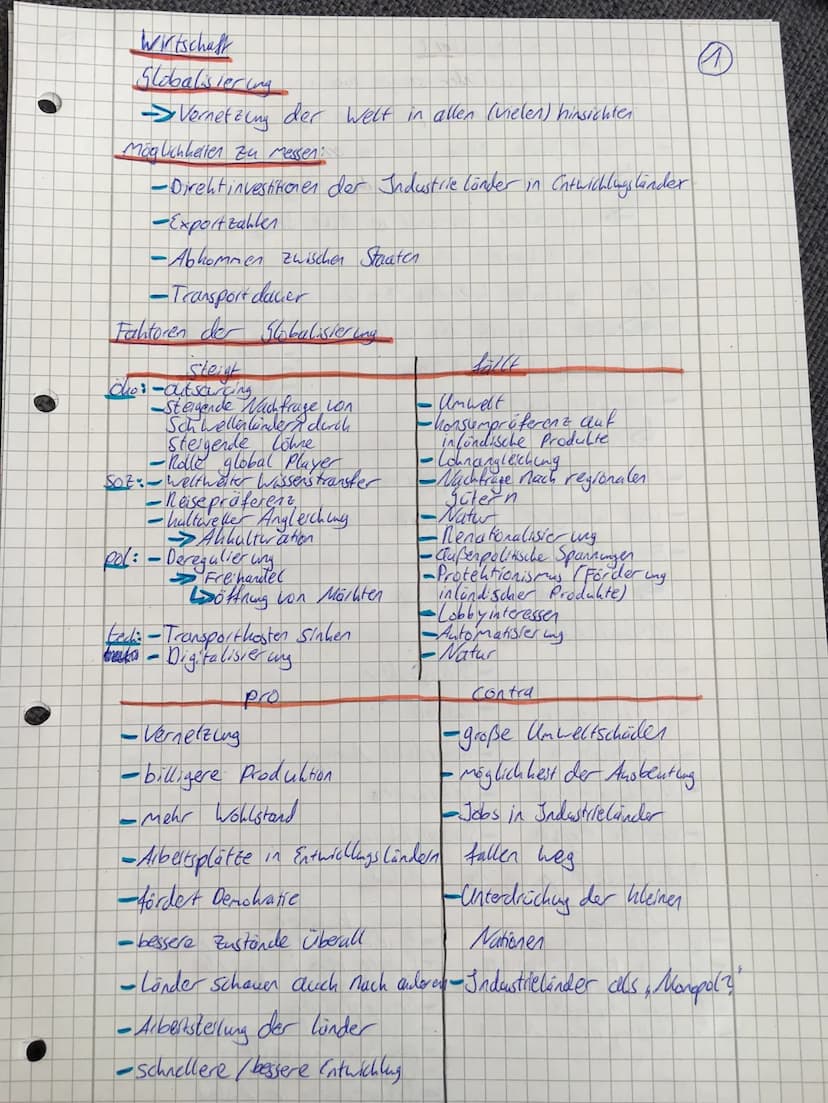 Wirtschaft
1
Globalisierung
→ Vernetzung der Welt in allen (vielen) hinsichten
Möglichkeiten zu messen:
- Direktinvestitionen der Industrieländer in Entwicklungsländer
- Exportzahlen
- Abkommen zwischen Staaten
- Transportdauer
Faktoren der Globalisierung
steigt
öko: - outsourcing
- steigende Nachfrage von
Schwellenländern durch
steigende Löhne
- Rolle global Player
soz: - weltweiter Wissenstransfer
- Reisepräferenz
- kultureller Angleichung
→ Akkulturation
pol: - Deregulierung
→ Freihandel
↳ öffnung von Märkten
tech: - Transportkosten sinken
- Digitalisierung
fällt
- Umwelt
- konsumpräferenz auf
inländische Produkte
- Lohnangleichung
- Nachfrage nach regionalen
Gütern
- Natur
- Renationalisierung
- außenpolitische Spannungen
- Protektionismus (Förderung
inländischer Produkte)
- Lobbyinteressen
- Automatisierung
- Natur
pro
- Vernetzung
- billigere Produktion
- mehr Wohlstand
- Arbeitsplätze in Entwicklungsländern
- fördert Demokratie
- bessere Zustände Überall
- Länder schauen auch nach anderen
- Arbeitsteilung der Länder
- schnellere / bessere Entwicklung
contra
- große Umweltschäden
- möglichkeit der Ausbeutung
- Jobs in Industrieländer
fallen weg
- Unterdrückung der kleinen
Nationen
- Industrieländer als „Monopol?“